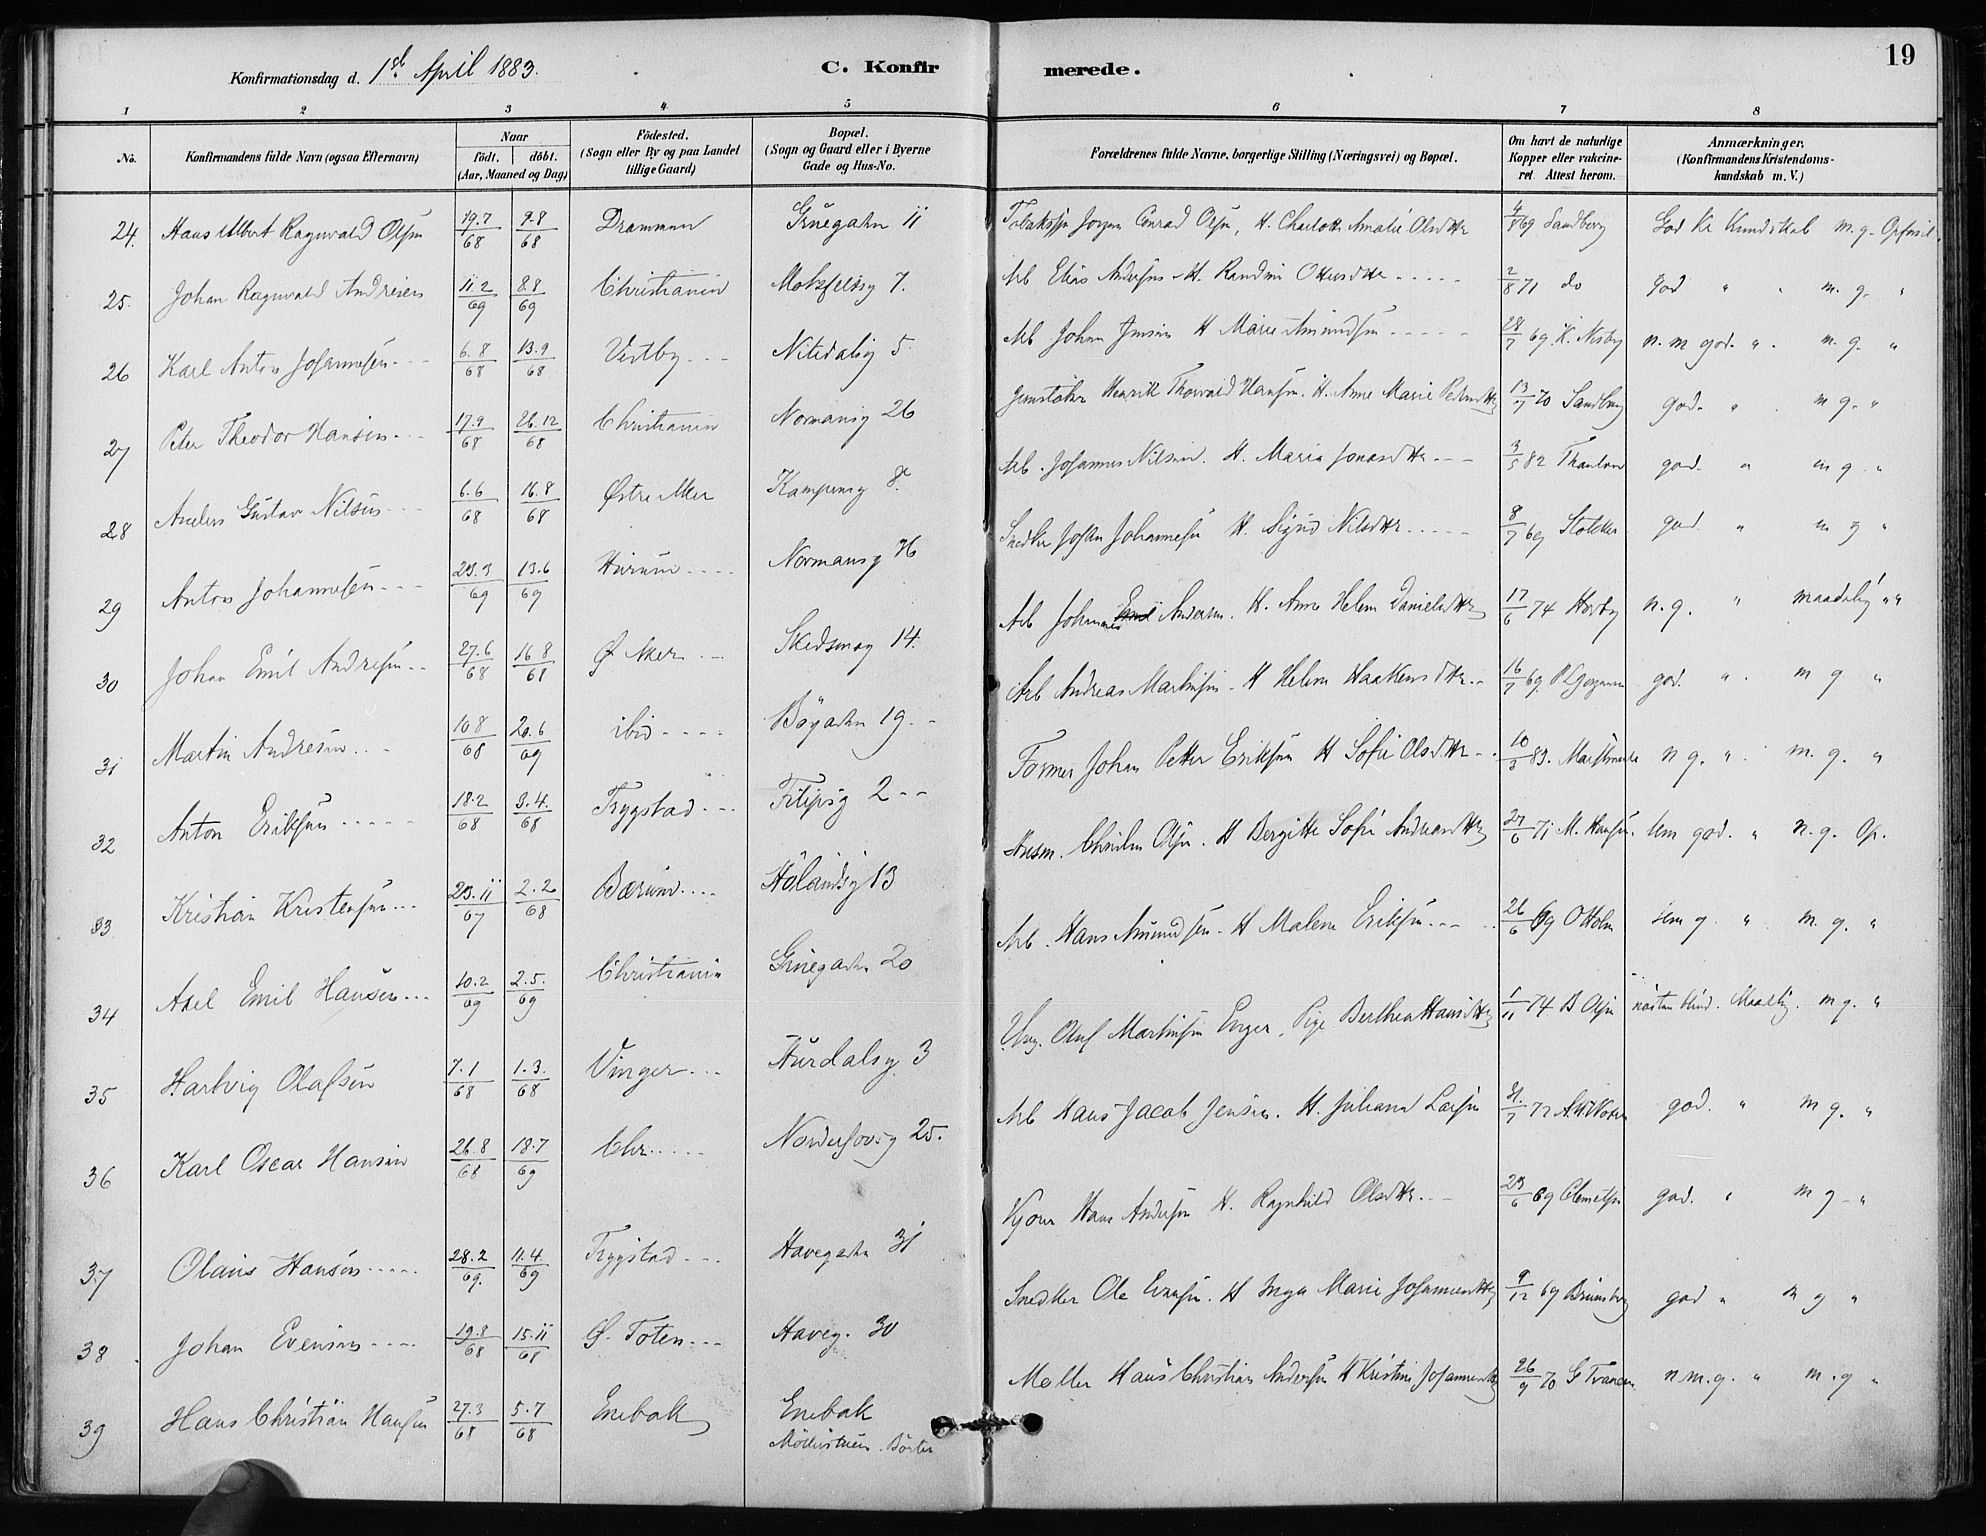 Konfirmationsdag d. 1st April 1883. C. Konfirmerede. 19
1 2 3 4 5 6 7 8
No. Konfirmandens fulde Navn (ogsaa Efternavn) Naar født. døbt. (Aar, Maaned og Dag) Fødested. (Sogn eller By og paa Landet tillige Gaard) Bopæl. (Sogn og Gaard eller i Byerne Gade og Hus-No. Forældrenes fulde Navne, borgerlige Stilling (Næringsvei) og Bopæl. Om havt de naturlige Kopper eller vakcineret. Attest herom. Anmærkninger, (Konfirmandens Kristendomskundskab m. V.)
24. Hans Albert Ragnvald Olsen 19.7/68 9.8/68 Drammen Grüegaden 11 Jørgen Conrad Olsen, H. Charlotte Amalie Olsdttr 4/7 69 Sandberg God Kr Kundskab m.g.
25. Johan Ragnvald Andresen 11.2/69 8.8/69 Christiania 7. Arb Elias Andersen H. Randine 2/8 71 do God " " m. g. "
26 Karl Anton Johannesen 6.8/68 13.9/68 Vestby Nitedalsg 5 Arb Johan Jensen H Marie Amundsen 28/7 69 K. Nesby n. m god. " m. g. "
27 Peter Theodor Hansen 17.9/68 26.12/68 Christiania Normansg 26 Henrik Thorvald Hansen H. Anne Marie 13/7 70 Sandberg god. " m g. "
28 Anders Gustav Nilsen 6.6/68 16.8/68 Østre Aker Kampensg 8. Arb. Johannes Nilsen. H. Maria Jonasdttr 3/5 82 god. " m g. "
29 Anton Johannesen 23.3/69 13.6/69 Hurum Normansg Snedker Johan Johannesen H Sigrid Nilsdttr 8/7 69 god. " m g "
30 Johan Emil Andresen 27.6/68 16.8/68 Ø Aker Skedsmog 14. Arb Johannes Andersen. H. Anne Helene Danielsdttr 17/6 74 n. g. " maadelig "
31 Martin Andresen 10.8/68 20.6/69 ibid Bøgaden 19. Arb Andreas Martinsen H Helene Haakensdttr 16/7 69. god. " m g "
32 Anton Eriksen 18.2/68 3.4./68 Trygstad Filipsg 2 Former Johan Petter Eriksen H Sofie Olsdttr 10/3 83. n g. " m. g. "
33 Kristian Kristensen 23.11/67 2.2/68 Bærum Hølandsg 13 Christen Olsen. H Bergitte Sofie Andreasdttr 27/6 71 M. Hansen. tem god. " n. g. Op.
34 Axel Emil Hansen 10.2/69 2.5./69 Christiania Grüegaden 20 Arb. Hans Amundsen. H Malene Eriksen 26/6 69 O Holm tem g. " m. g. "
35 Hartvig Olafsen 7.1/68 1.3./68 Vinger Hurdalsg. 3 Ung. Oluf Martinsen Enger, Pige Berthea Hansdttr 1/11 74 B Olsen næsten blind. m g. "
36 Karl Oscar Hansen 26.8/68 18.7/69 Chr. Norderhovsg 25. Arb Hans Jacob Jensen. H. Juliane Larsen 72 god. " m g. "
37 Olaus Hansen 28.2/69. 11.4./69 Trygstad Havegaden 31 Hans Andersen H. Ragnhild Olsdttr 23/6 69 Clemetsen god. " m g "
38 Johan Evensen 19.8/68 15.11/68 Ø. Toten Haveg. 30 Snedker Ole Evensen. H Inga Marie Johannesdttr 9/12 69 god " m g "
39 Hans Christian Hansen 27.3/68 5.7/68 Enebak Enebak Møller Hans Christian Andersen H Kristine Johannesdttr 26/9 70 n m. g. " m. g "